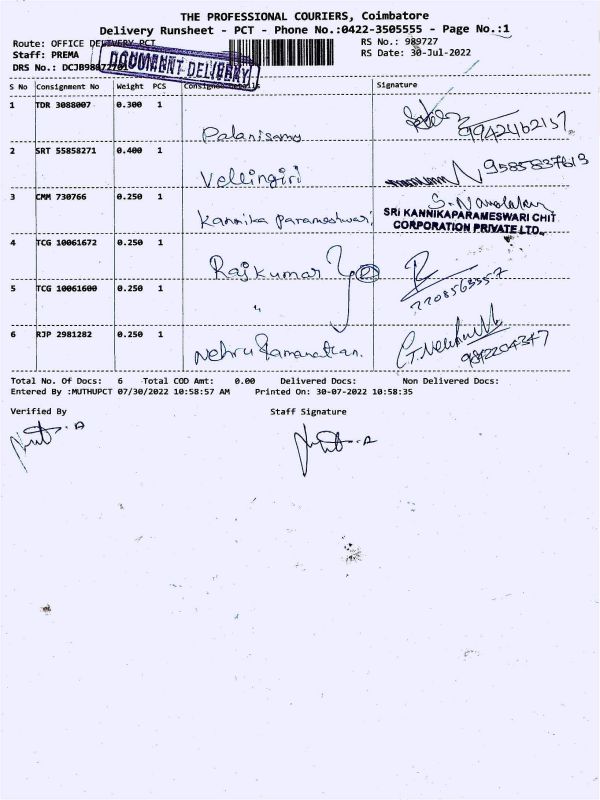 THE PROFESSIONAL COURIERS, Coimbatore
Delivery Runsheet - PCT - Phone No.:0422-3505555 - Page No.:1
Route: OFFICE DELIVERY PCT RS No.: 989727
Staff: PREMA RS Date: 30-Jul-2022
DOCUMENT DELIVERY
DRS No.:
S No Consignment No Weight PCS Consignment Details Signature
1 TDR 3088007 0.300 1 Palanisamy 9942462157
2 SRT 55858271 0.400 1 Vellingiri
3 CMM 730766 0.250 1 Kannika Parameshwari
SRI KANNIKAPARAMESWARI CHIT
CORPORATION PRIVATE LTD.
4 TCG 10061672 0.250 1 Rajkumar
5 TCG 10061600 0.250 1 "
6 RJP 2981282 0.250 1 Nehru Ramanathan.
Total No. Of Docs: 6 Total COD Amt: 0.00 Delivered Docs: Non Delivered Docs:
Entered By :MUTHUPCT 07/30/2022 10:58:57 AM Printed On: 30-07-2022 10:58:35
Verified By Staff Signature